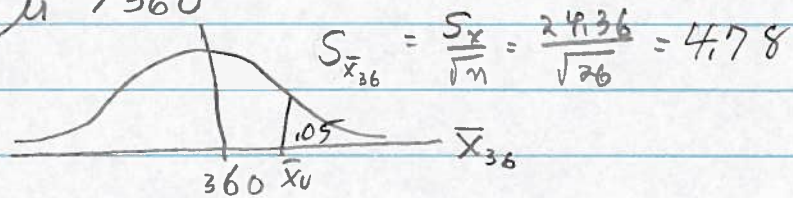 μ > 360
S_x̄36 = S_x/√n = 24.36/√26 = 4.78
.05
360 x̄u
X̄36